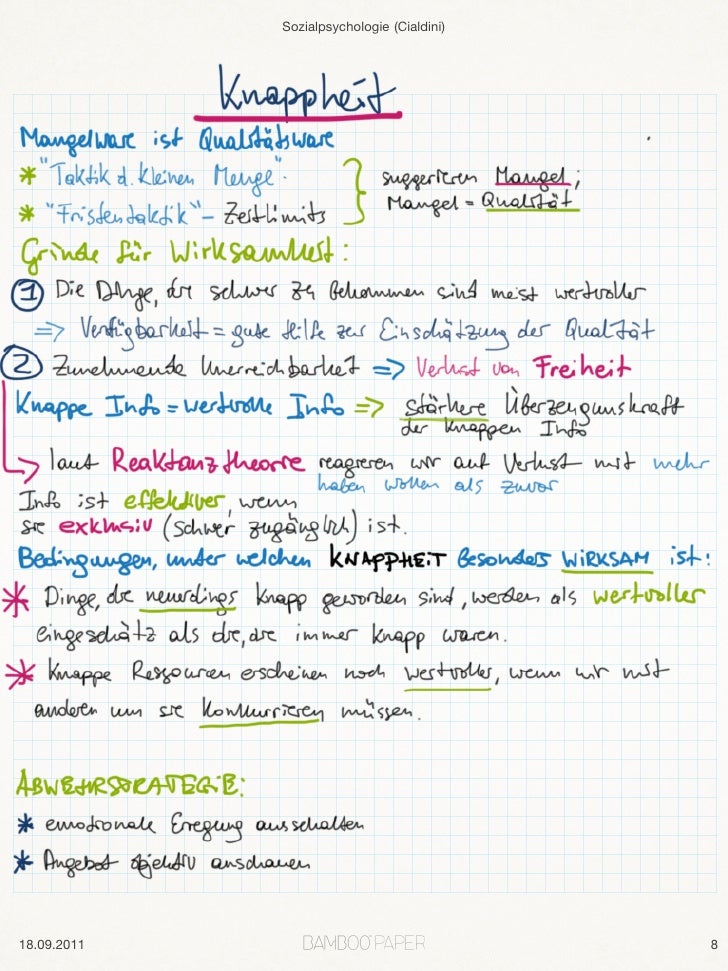 Sozialpsychologie (Cialdini)
Knappheit
Mangelware ist Qualitätsware
* "Taktik d. kleinen Menge".
* "Fristentaktik" - Zeitlimits
suggerieren Mangel;
Mangel = Qualität
Gründe für Wirksamkeit:
1 Die Dinge, die schwer zu bekommen sind meist wertvoller
=> Verfügbarkeit = gute Hilfe zur Einschätzung der Qualität
2 Zunehmende Unerreichbarkeit => Verlust von Freiheit
Knappe Info = wertvolle Info => stärkere Überzeugunskraft
der knappen Info
laut Reaktanztheorie reagieren wir auf Verlust mit mehr
haben wollen als zuvor
Info ist effektiver, wenn
sie exklusiv (schwer zugänglich) ist.
Bedingungen, unter welchen KNAPPHEIT besonders WIRKSAM ist:
* Dinge, die neuerdings knapp geworden sind, werden als wertvoller
eingeschätz als die, die immer knapp waren.
* Knappe Ressouren erscheinen noch wertvoller, wenn wir mit
anderen um sie konkurrieren müssen.
ABWEHRSTRATEGIE:
* emotionale Erregung ausschalten
* Angebot objektiv anschauen
18.09.2011
BAMBOO PAPER
8